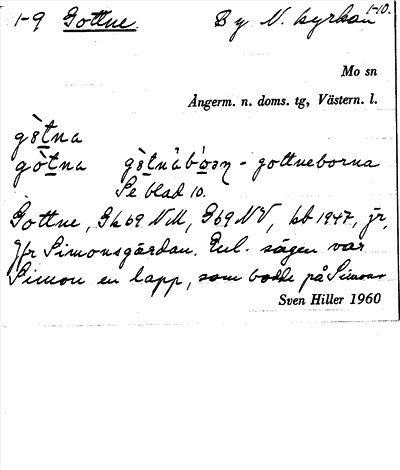 1-9 Gottne. By N. kyrkan 1-10.
Mo sn
Ångerm. n. doms. tg, Västern. l.
gò̤tna
gò̤tna gò̤tnäbóan - gottneborna
Se blad 10.
Gottne, Gk 69 NM, G 69 NV, kb 1947, jr,
Jfr Simonsgården. Enl. sägen var
Simon en lapp, som bodde på Simons
Sven Hiller 1960